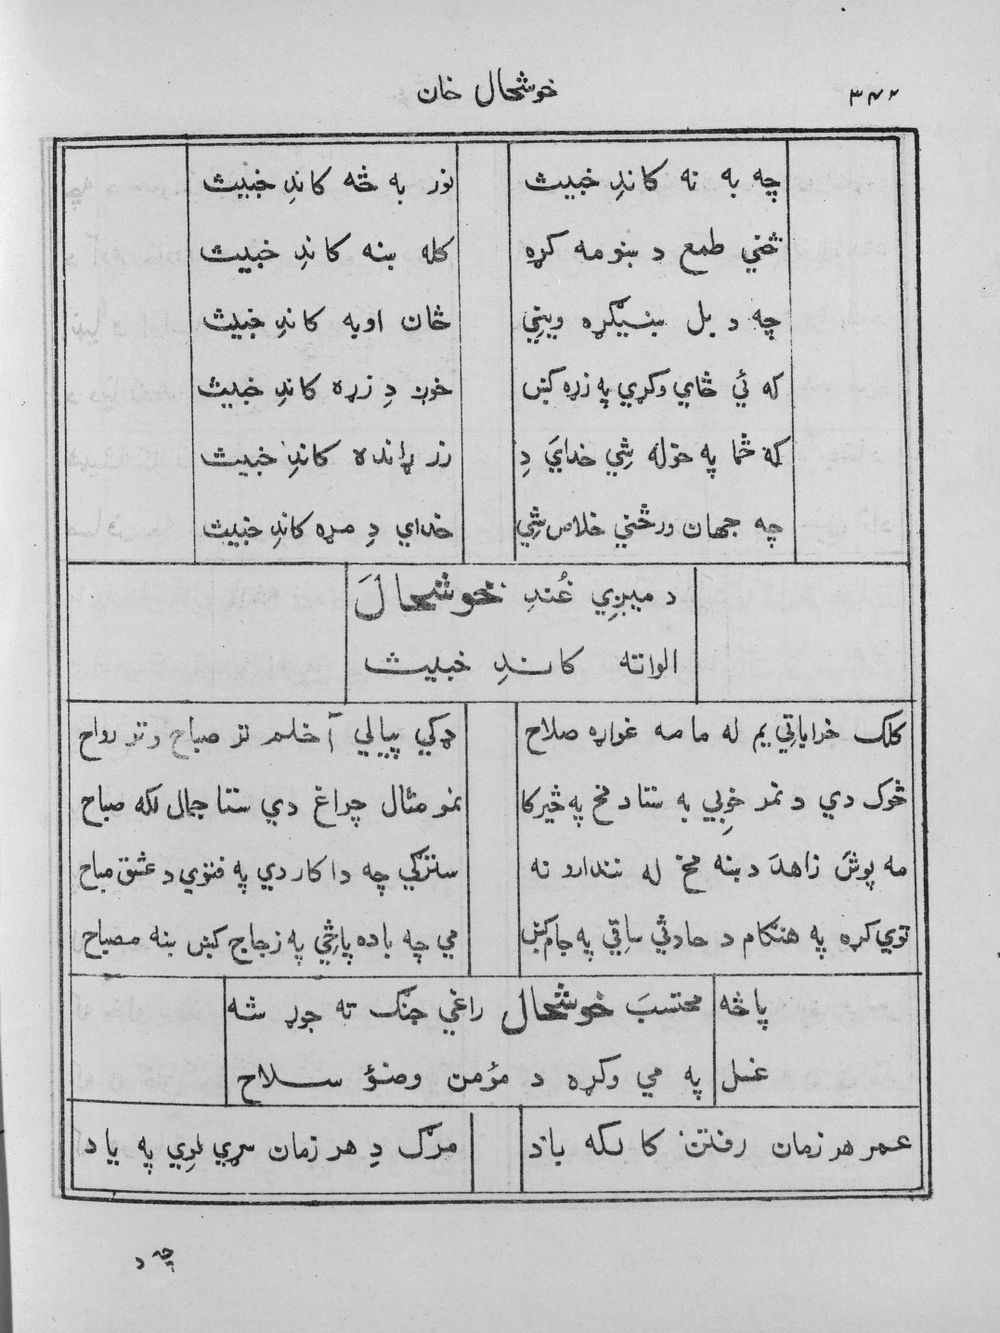 ۳۴۲ خوشحال خان
چه به نه کاندِ خبیث نور به څه کاندِ خبیث
ځني طمع د ښو مه کړه کله ښه کاندِ خبیث
چه د بل ښیګړه ویني ځان اوبه کاندِ خبیث
که ئې ځاي وکړي په زړه کښ خوږ دِ زړه کاندِ خبیث
که څما په خوله شِي خداي دِ زر ړانده کاندِ خبیث
چه جهان ورځني خلاص شِي خداي دِ مړه کاندِ خبیث
د میږي غُندِ خوشحالَ
الواته کاندِ خبیث
کلک خراباتِي یم له ما مه غواړه صلاح ډکي پیالي آخلم تر صباح وتر رواح
څوک دي د نمر خوبي به ستا د مخ په څیر کا نمر مثال چراغ دي ستا جمال لکه صباح
مه پوښ زاهدَ د ښه مخ له نندارو نه سترګي چه دا کار دي په فتوي د عشق مباح
توي کړه په هنګام د حادثي ساقي په جام کښ مي چه باده پارځي په زجاج کښ ښه مصباح
پاڅه محتسبَ خوشحال راغي جنګ ته جوړ شه
غسل په مي وکړه د مؤمن وضؤ سلاح
عمر هر زمان رفتن کا لکه باد مرګ دِ هر زمان سړي لرِي په یاد
چه د